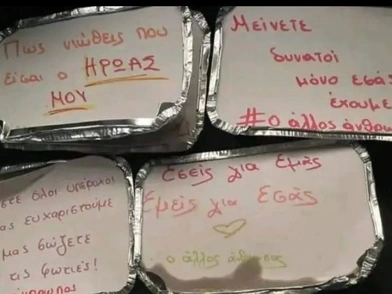 Πως νιώθεις που
είσαι ο ΗΡΩΑΣ
ΜΟΥ
Μείνετε
δυνατοί
μόνο εσάς
έχουμε
#ο άλλος άνθρω
στε όλοι υπέροχοι
ας ευχαριστούμε
μας σώζετε
τις φωτιές!
άνθρωπος
Εσείς για Εμάς
Εμείς για Εσάς
ο άλλος άνθρωπος